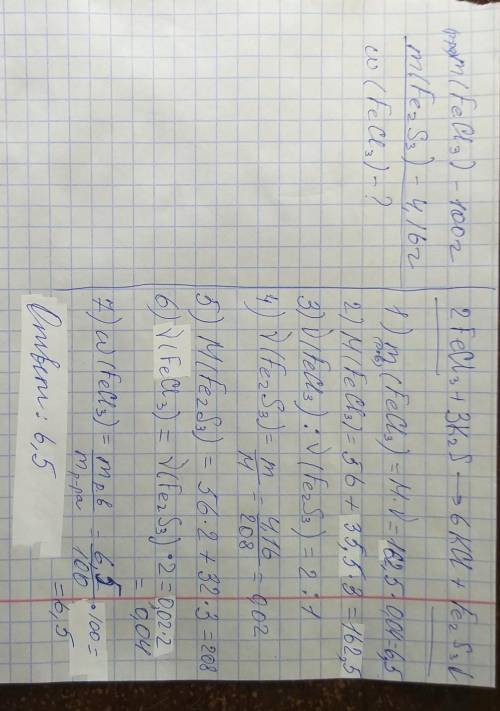 m(FeCl₃) - 100г
m(Fe₂S₃) - 4,16г
ω(FeCl₃) - ?
2FeCl₃ + 3K₂S → 6KCl + Fe₂S₃↓
1) m(FeCl₃) = M·ν = 162,5·0,04 = 6,5
2) M(FeCl₃) = 56 + 35,5·3 = 162,5
3) ν(FeCl₃) : ν(Fe₂S₃) = 2 : 1
4) ν(Fe₂S₃) = m/M = 4,16/208 = 0,02
5) M(Fe₂S₃) = 56·2 + 32·3 = 208
6) ν(FeCl₃) = ν(Fe₂S₃)·2 = 0,02·2
= 0,04
7) ω(FeCl₃) = m рв/m р-ра = 6,5/100 ·100 =
= 6,5
Ответ: 6,5